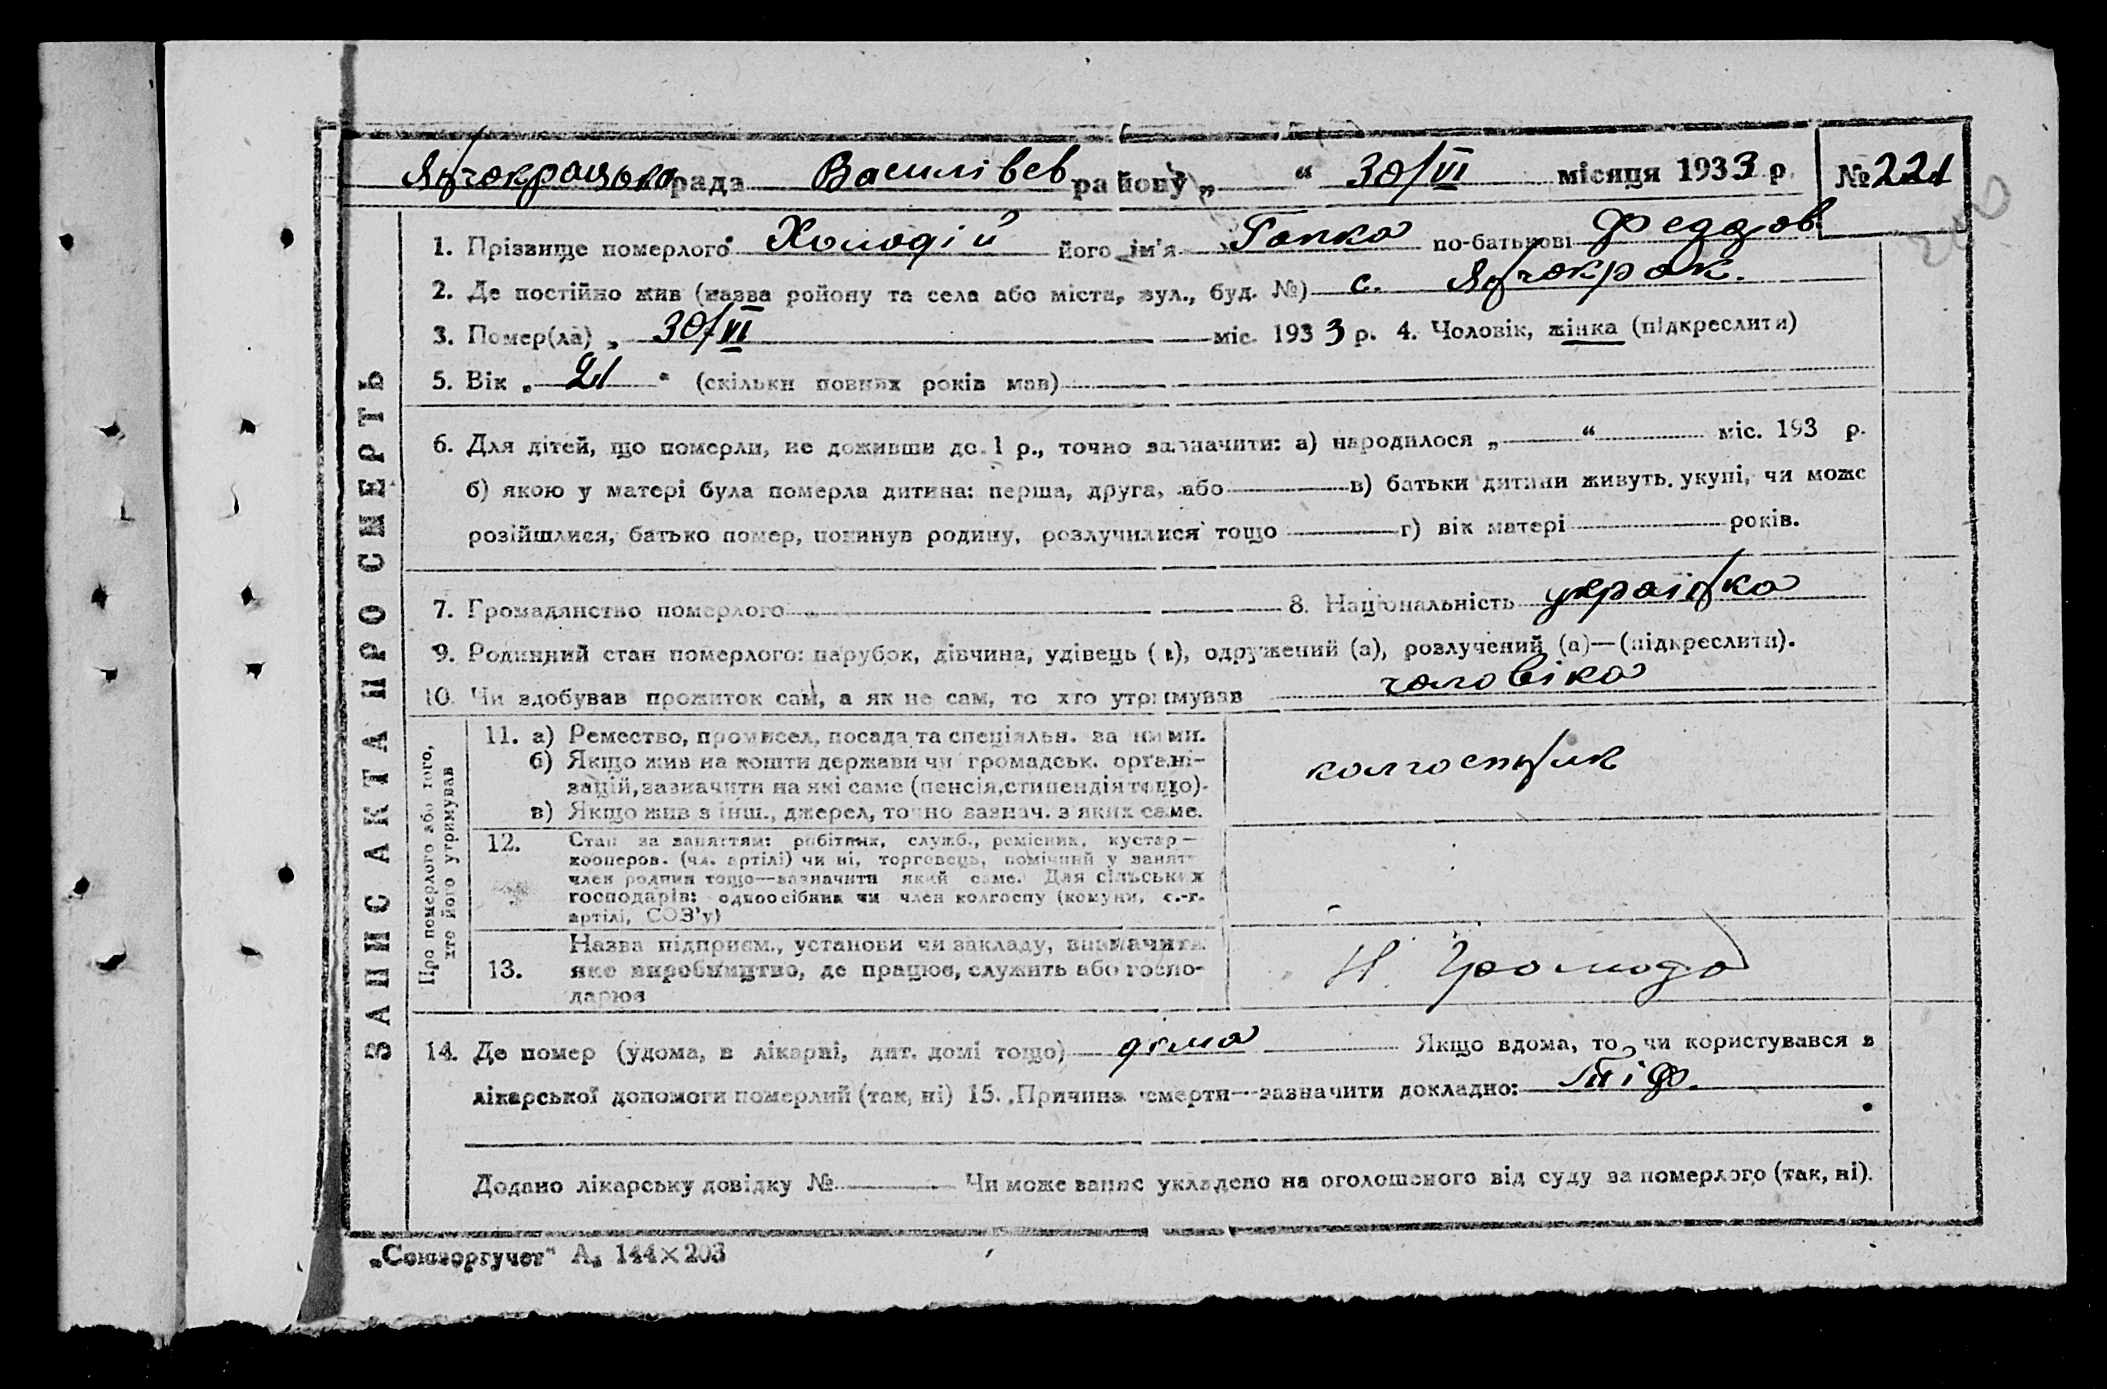 Янчокрацька рада Василівськ району „ “ 30/VI місяця 1933 р. № 221
1. Прізвище померлого Холодій його ім'я Гапка по-батькові Федоров.
2. Де постійно жив (назва району та села або міста, вул., буд. №) с. Янчокрак.
3. Помер(ла) „ 30/VI міс. 1933 р. 4. Чоловік, жінка (підкреслити)
5. Вік „ 21 “ (скільки повних років мав)
6. Для дітей, що померли, не доживши до 1 р., точно зазначити: а) народилося „ “ міс. 193 р.
б) якою у матері була померла дитина: перша, друга, або в) батьки дитини живуть укупі, чи може
розійшлися, батько помер, покинув родину, розлучилися тощо г) вік матері років.
7. Громадянство померлого 8. Національність українка
9. Родинний стан померлого: парубок, дівчина, удівець (а), одружений (а), розлучений (а)—(підкреслити).
10. Чи здобував прожиток сам, а як не сам, то хто утримував чоловіка
ЗАПИС АКТА ПРО СМЕРТЬ
Про померлого або того,
хто його утримував
11. а) Ремество, промисел, посада та спеціяльн. за ними.
б) Якщо жив на кошти держави чи громадськ. органі-
зацій, зазначити на які саме (пенсія, стипендія тощо).
в) Якщо жив з інш., джерел, точно зазнач. з яких саме.
колгоспник
12. Стан за заняттям: робітник, служб., ремісник, кустар—
кооперов. (чл. артілі) чи ні, торговець, помічний у занятт
член родини тощо—зазначити який саме. Для сільських
господарів: одноосібник чи член колгоспу (комуни, с.-г.
артілі, СОЗ'у)
13. Назва підприєм., установи чи закладу, визначити
яке виробництво, де працює, служить або госпо-
дарює
Н. Громада
14. Де помер (удома, в лікарні, дит. домі тощо) дома Якщо вдома, то чи користувався з
лікарської допомоги померлий (так, ні) 15. Причина смерти—зазначити докладно: тіф.
Додано лікарську довідку № Чи може запис укладено на оголошеного від суду за померлого (так, ні).
„Союзоргучет" А, 144×203